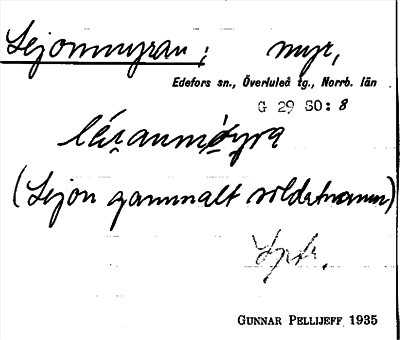 Lejonmyran; myr,
Edefors sn., Överluleå tg., Norrb. län
G 29 SO: 8
(Lejon gammalt soldatnamn)
GUNNAR PELLIJEFF 1935